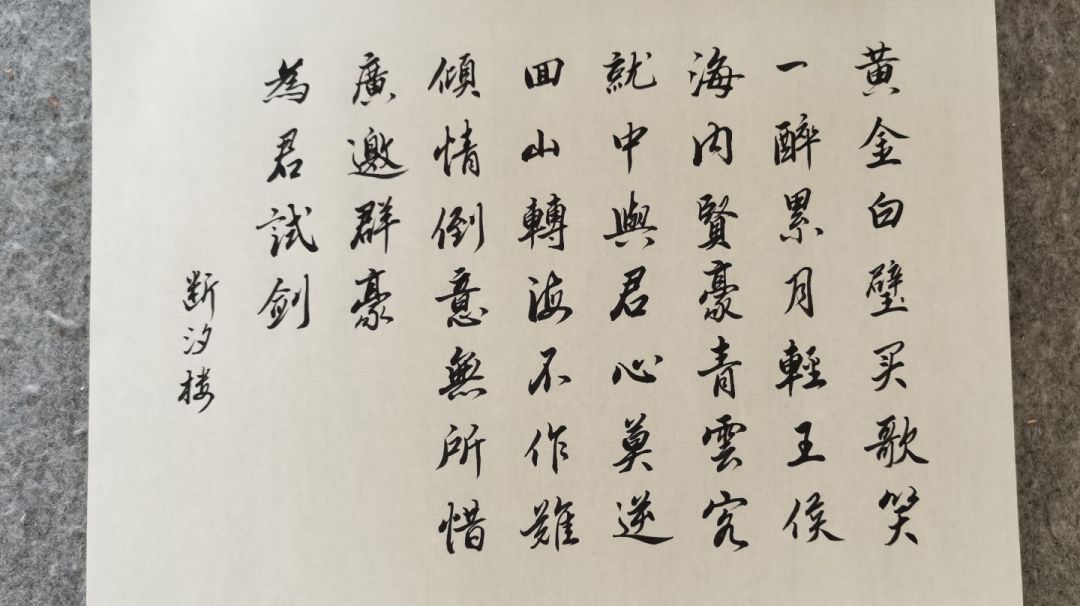 黄金白璧买歌笑
一醉累月輕王侯
海内賢豪青雲客
就中與君心莫逆
回山轉海不作難
傾情倒意無所惜
廣邀群豪
為君試劍
断汐楼